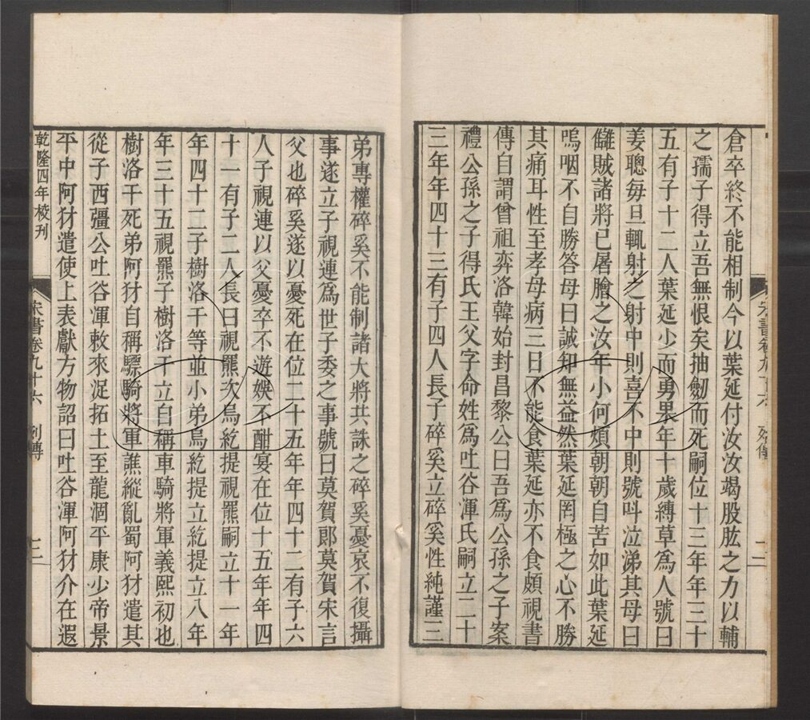 倉卒終不能相制今以葉延付汝汝竭股肱之力以輔
之孺子得立吾無恨矣抽劒而死嗣位十三年年三十
五有子十二人葉延少而勇果年十歲縛草爲人號曰
姜聰每旦輒射之射中則喜不中則號呌泣涕其母曰
讎賊諸將已屠膾之汝年小何煩朝朝自苦如此葉延
嗚咽不自勝答母曰誠知無益然葉延罔極之心不勝
其痛耳性至孝母病三日不能食葉延亦不食頗視書
傳自謂曾祖弈洛韓始封昌黎公曰吾爲公孫之子案
禮公孫之子得氏王父字命姓爲吐谷渾氏嗣立二十
三年年四十三有子四人長子碎奚立碎奚性純謹三
宋書卷九十六 列傳 二
弟專權碎奚不能制諸大將共誅之碎奚憂哀不復攝
事遂立子視連爲世子委之事號曰莫賀郎莫賀宋言
父也碎奚遂以憂死在位二十五年年四十二有子六
人子視連以父憂卒不遊娛不酣宴在位十五年年四
十一有子二人長曰視羆次烏紇提視羆嗣立十一年
年四十二子樹洛干等並小弟烏紇提立紇提立八年
年三十五視羆子樹洛干立自稱車騎將軍義熙初也
樹洛干死弟阿犲自稱驃騎將軍譙縱亂蜀阿犲遣其
從子西彊公吐谷渾敕來泥拓土至龍涸平康少帝景
平中阿犲遣使上表獻方物詔曰吐谷渾阿犲介在遐
乾隆四年校刊
宋書卷九十六 列傳 三